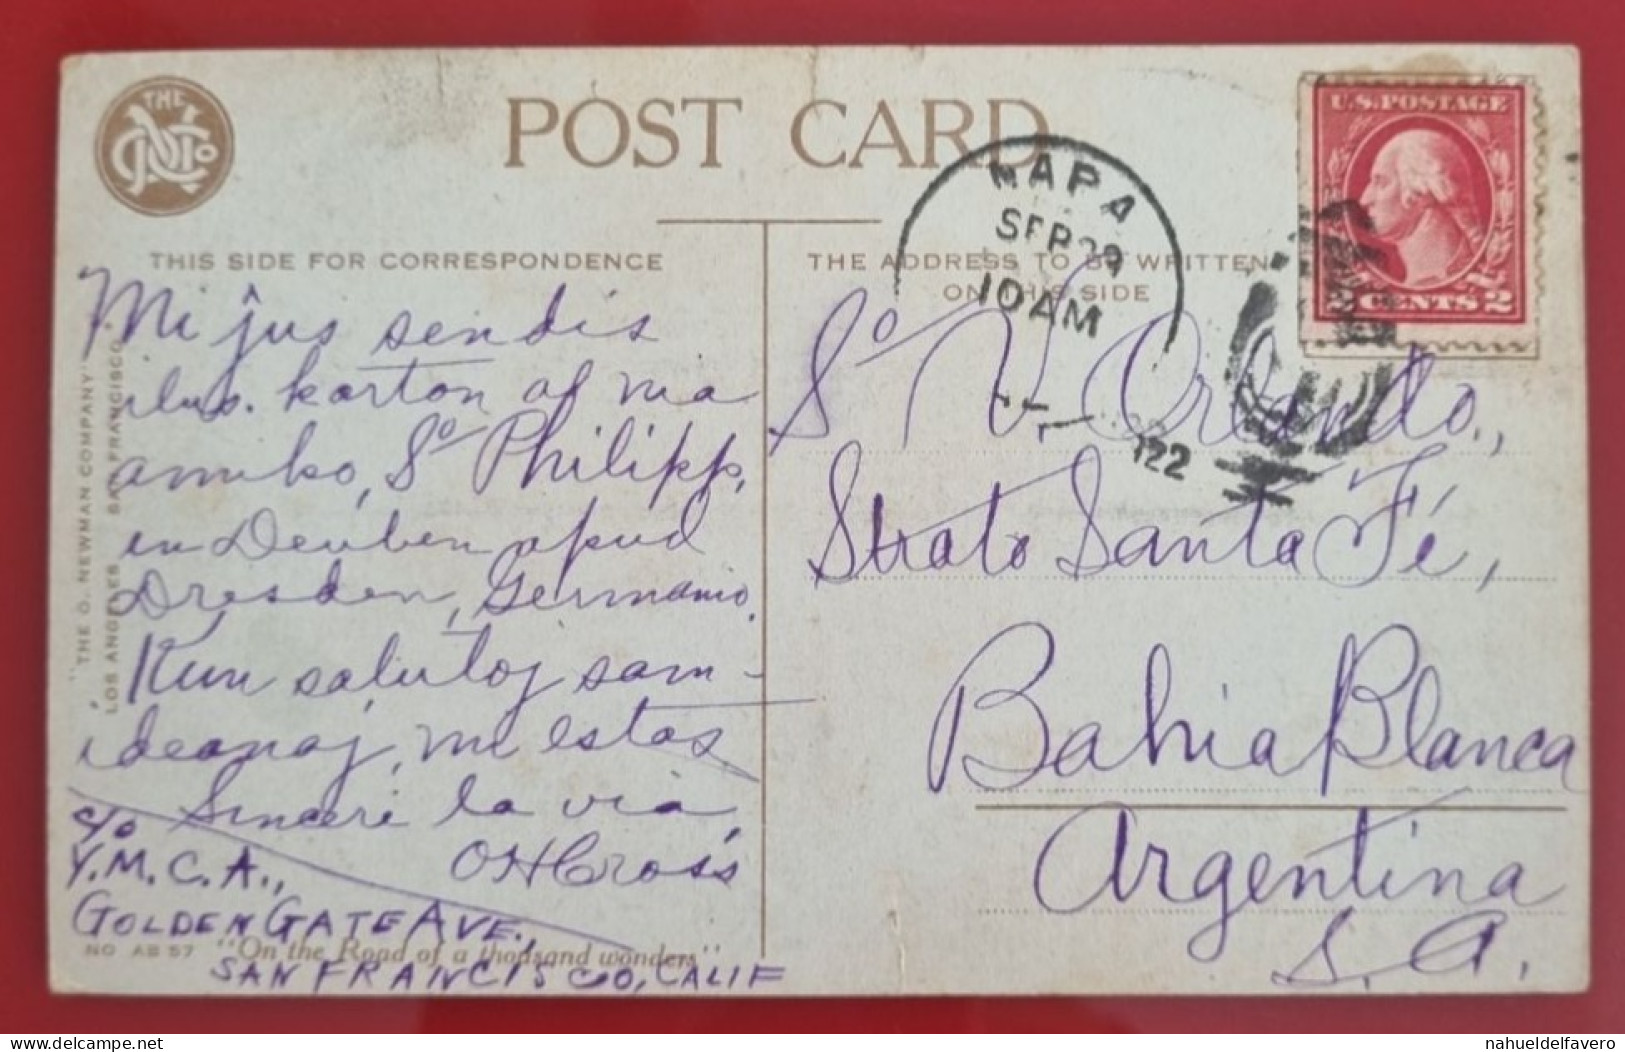 THE
NCo
POST CARD
NAPA
SEP 29
10 AM
1922
U.S. POSTAGE
2 CENTS 2
THIS SIDE FOR CORRESPONDENCE
THE ADDRESS TO BE WRITTEN
ON THIS SIDE
Mi ĵus sendis
ilus. karton al via
amiko, So Philipp,
en Deuben apud
Dresden, Germanio.
Kun salutoj sam-
ideanaj, mi estas
Sincere la via,
OHCross
c/o
Y.M.C.A.,
GOLDEN GATE AVE.,
SAN FRANCISCO, CALIF
So V. Orlando,
Strato Santa Fé,
Bahia Blanca
Argentina
S. A.
THE O. NEWMAN COMPANY
LOS ANGELES SAN FRANCISCO
NO AB 57 "On the Road of a thousand wonders"
delcampe.net
nahueldelfavero